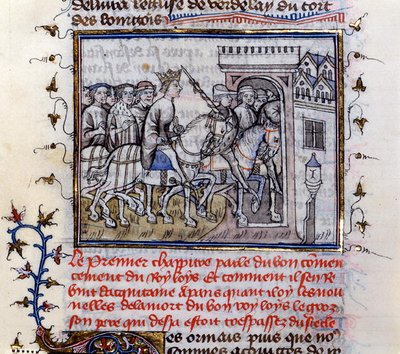 des bontois
Le Premier chapitre parle du bon comen
cement du Roy loys Et comment il sen re
vint dacquitaine a paris quant il oy les nou
velles de la mort du bon roy loys le gros
son pere qui desia estoit trespassez du siecle
es ormais puis que no